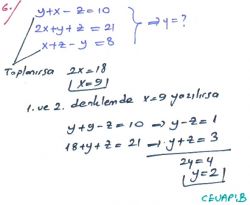 6.)
y+x-z=10
2x+y+z=21 ⇒y=?
x+z-y=8
Toplanırsa 2x=18
x=9
1. ve 2. denklemde x=9 yazılırsa
y+9-z=10 ⇒ y-z=1
18+y+z=21 ⇒ y+z=3
2y=4
y=2
CEVAP:B